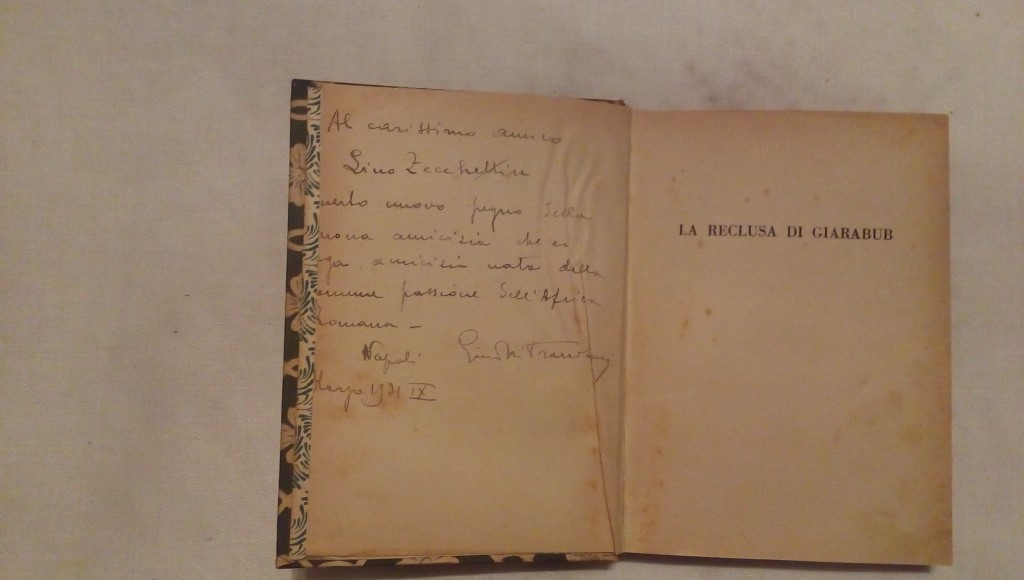 Al carissimo amico
Lino Zecchettin
uesto nuovo pegno della
uona amicizia che ci
ga amicizia nata dalla
omune passione dell'Africa
romana –
Napoli
Marzo 1931 IX
LA RECLUSA DI GIARABUB